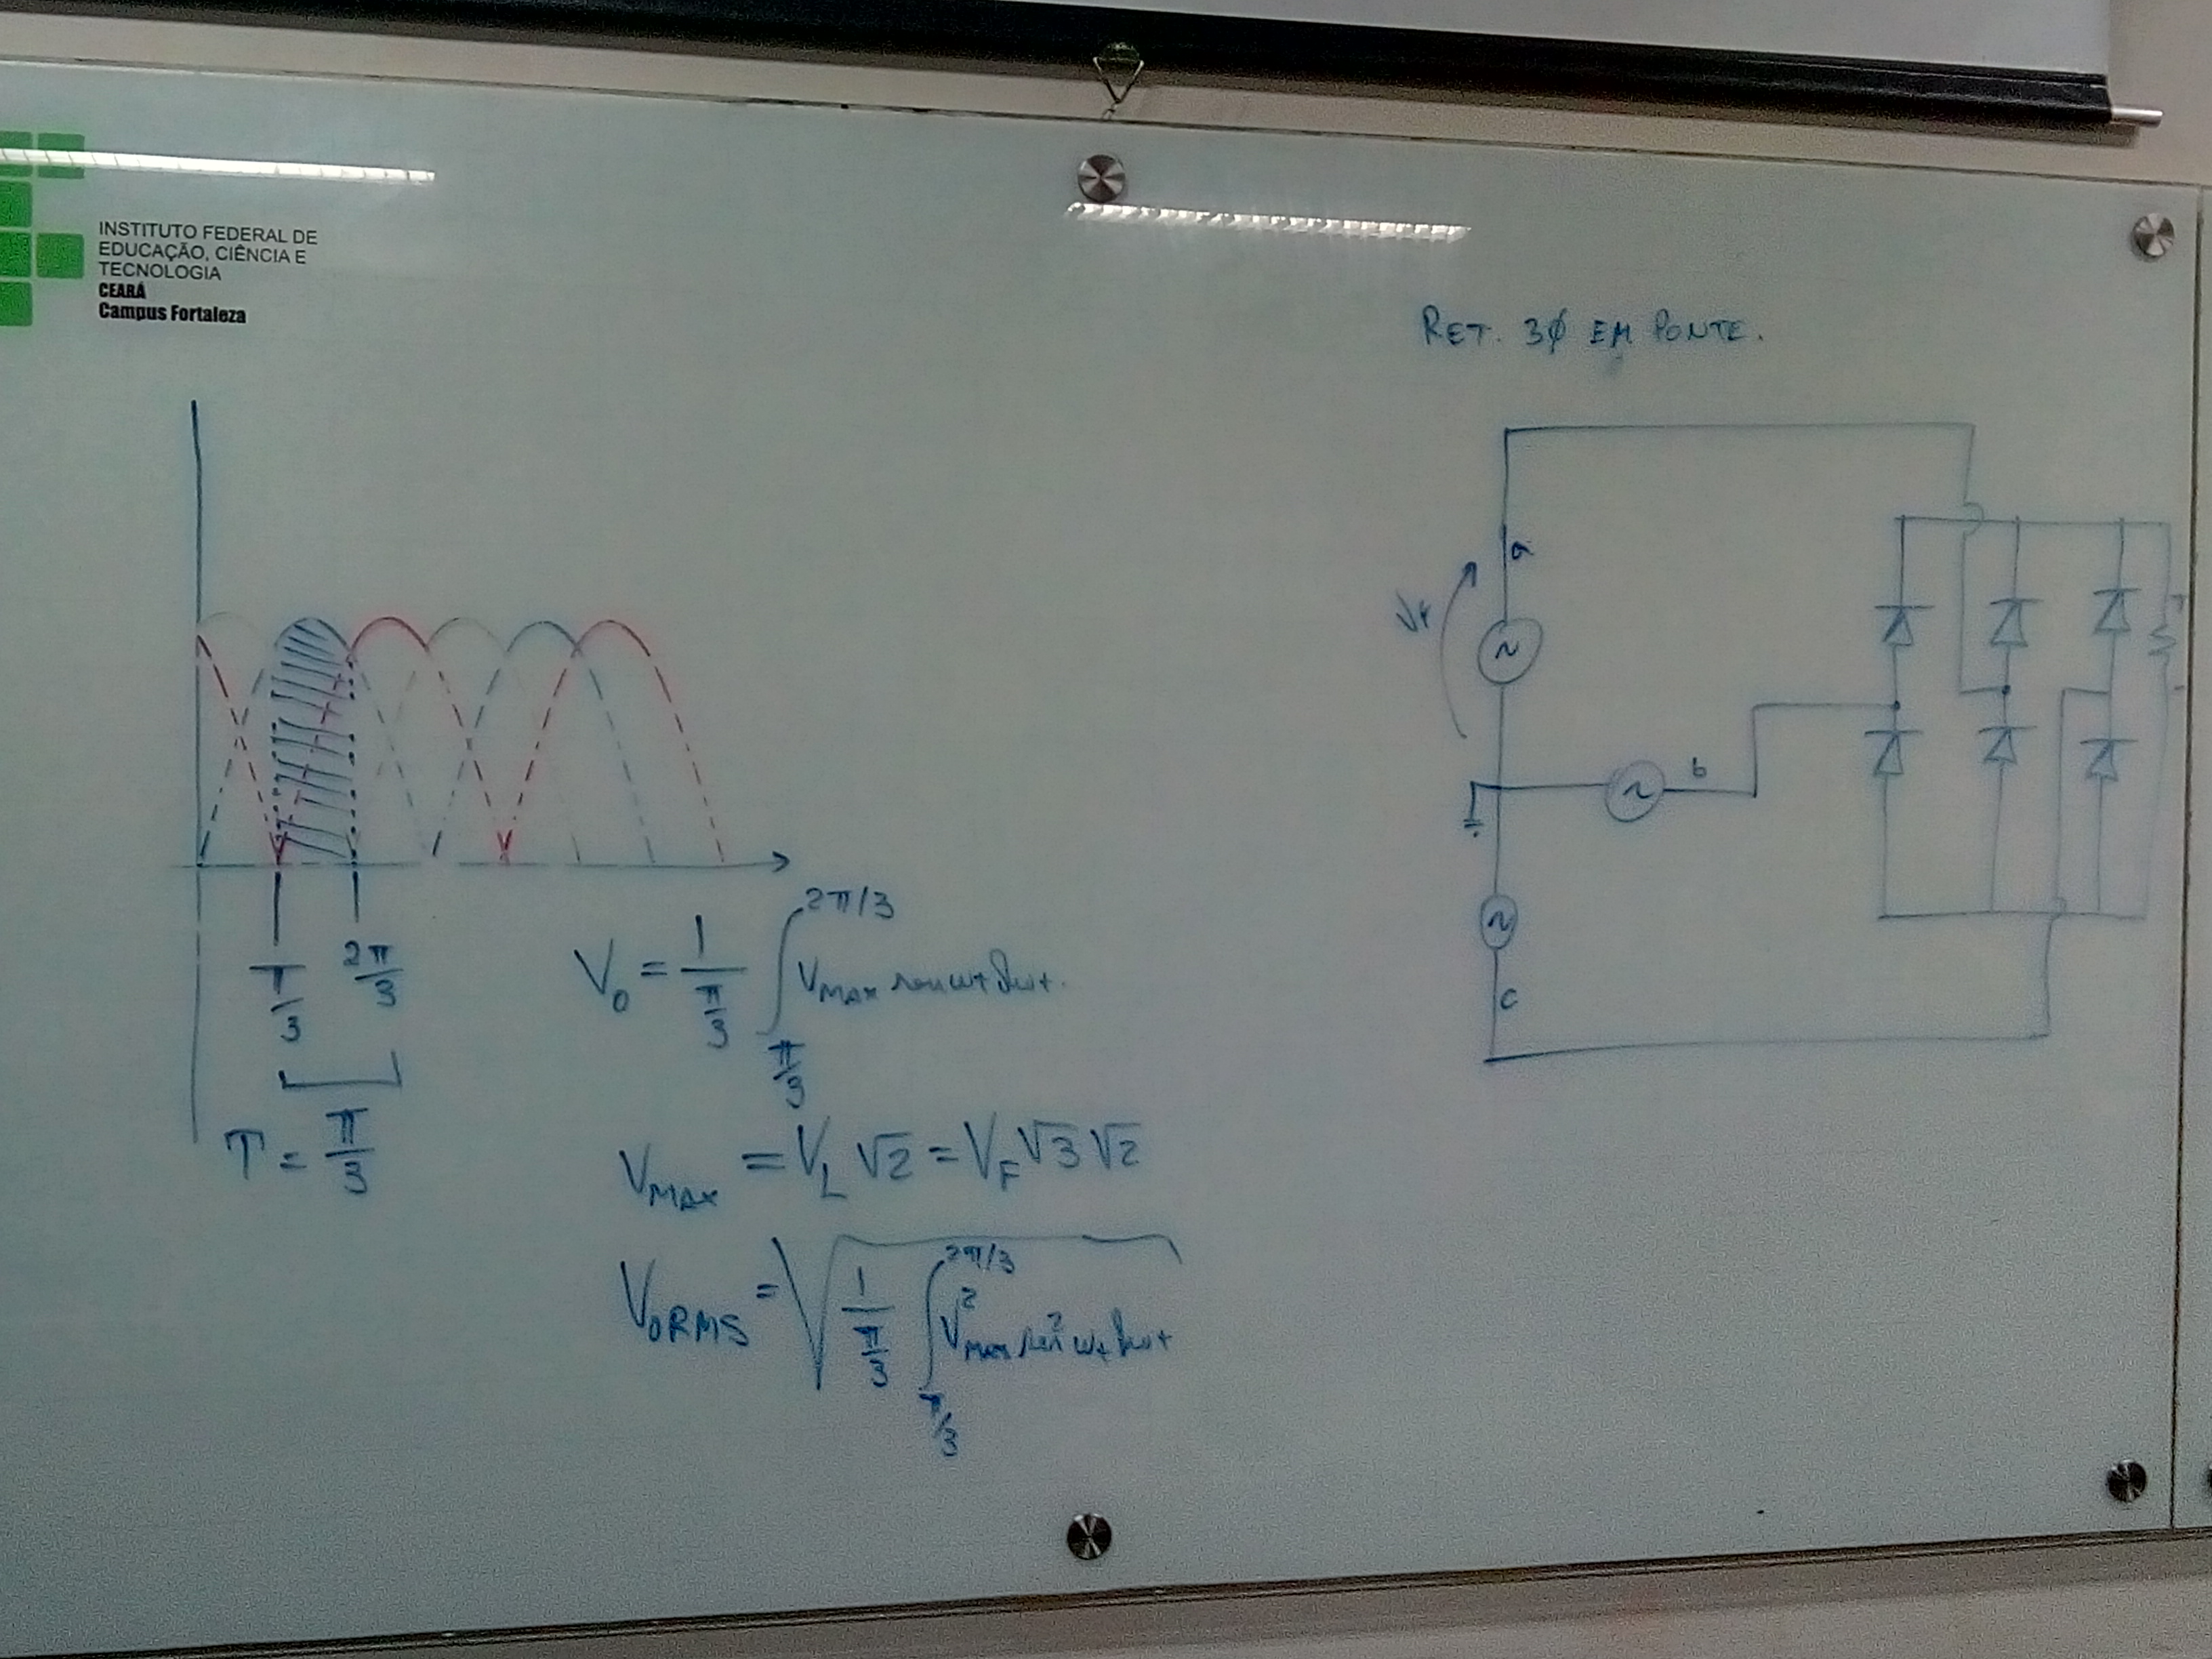 INSTITUTO FEDERAL DE
EDUCAÇÃO, CIÊNCIA E
TECNOLOGIA
CEARÁ
Campus Fortaleza
RET. 3ϕ EM PONTE.
a
VF
~
b
~
~
c
π/3 2π/3
T = π/3
V₀ = 1/(π/3) ∫_{π/3}^{2π/3} V_MAX sen ωt dωt.
V_MAX = V_L √2 = V_F √3 √2
V_0RMS = √(1/(π/3) ∫_{π/3}^{2π/3} V²_MAX sen² ωt dωt)